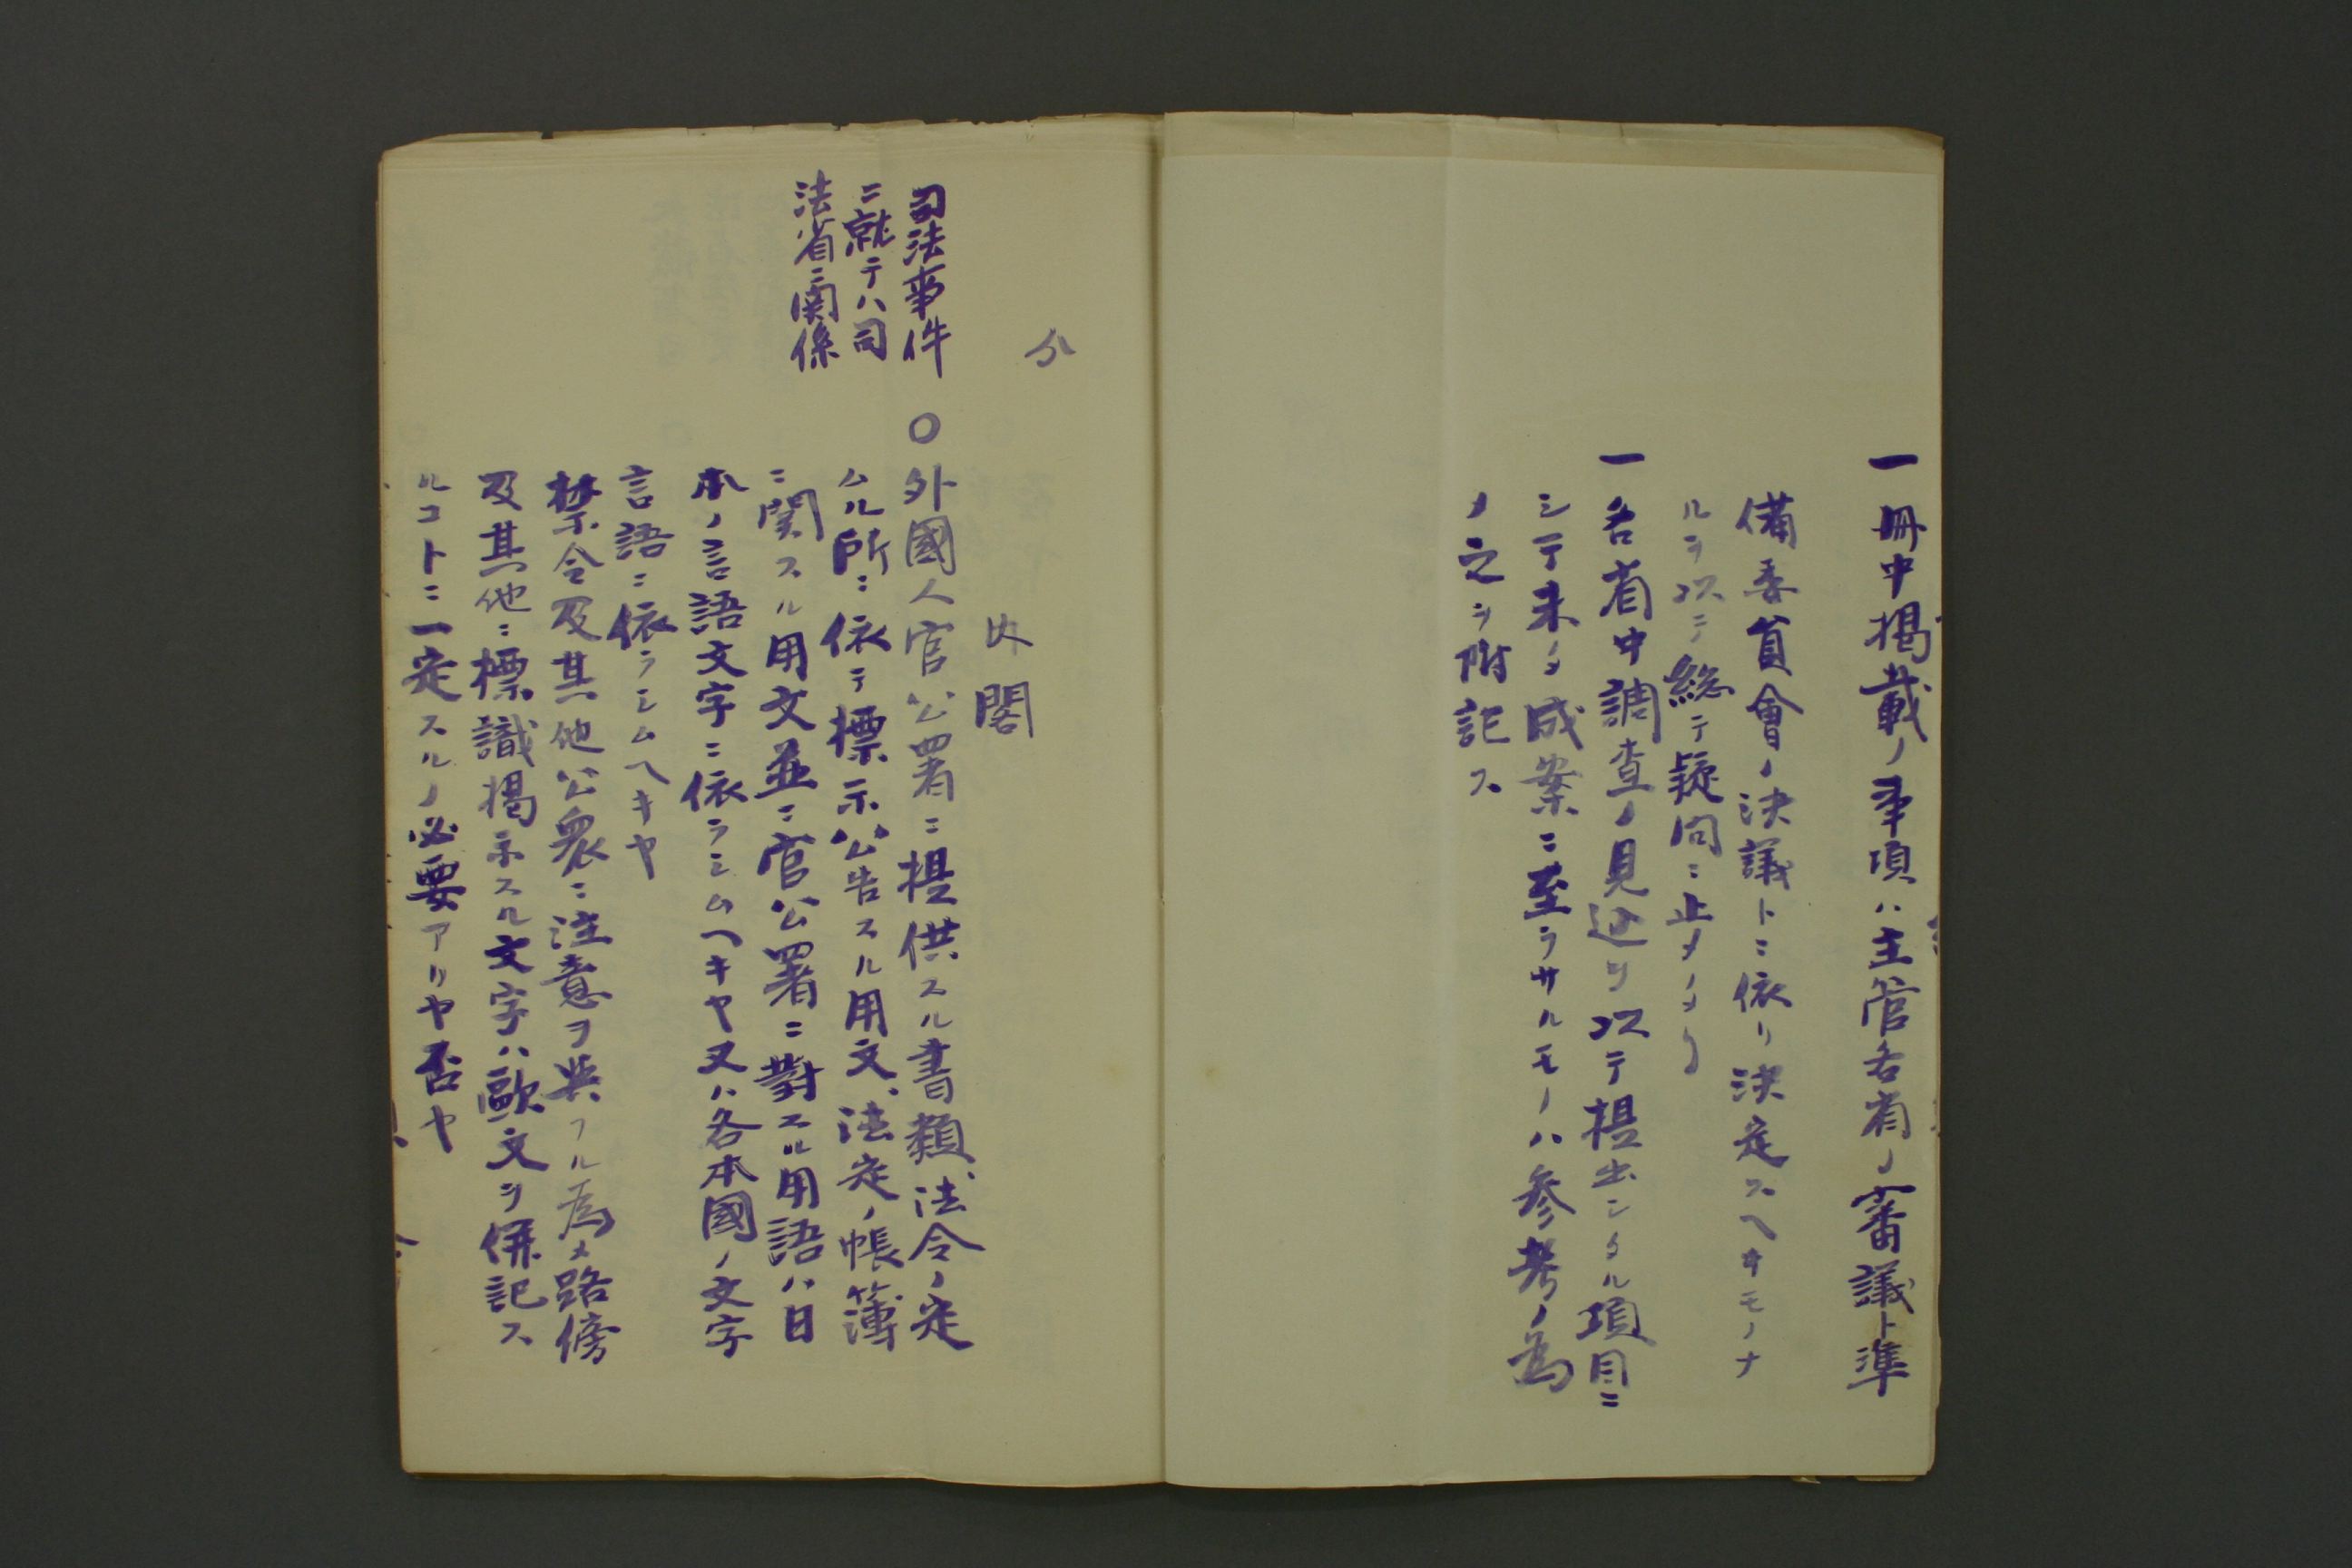 一冊中掲載ノ事項ハ主管各省ノ審議ト準
備委員會ノ決議トニ依リ決定スヘキモノナ
ルヲ以テ総テ疑問ニ止メタリ
一各省中調査ノ見込ヲ以テ提出シタル項目ニ
シテ未タ成案ニ至ラサルモノハ参考ノ為
メ之ヲ附記ス
内閣
司法事件
ニ就テハ司
法省ニ関係
〇外國人官公署ニ提供スル書類、法令ノ定
ムル所ニ依テ標示公告スル用文、法定ノ帳簿
ニ関スル用文並ニ官公署ニ對スル用語ハ日
本ノ言語文字ニ依ラシムヘキヤ又ハ各本國ノ文字
言語ニ依ラシムヘキヤ
禁令及其他公衆ニ注意ヲ與フル為メ路傍
及其他ニ標識掲示スル文字ハ歐文ヲ併記ス
ルコトニ一定スルノ必要アリヤ否ヤ